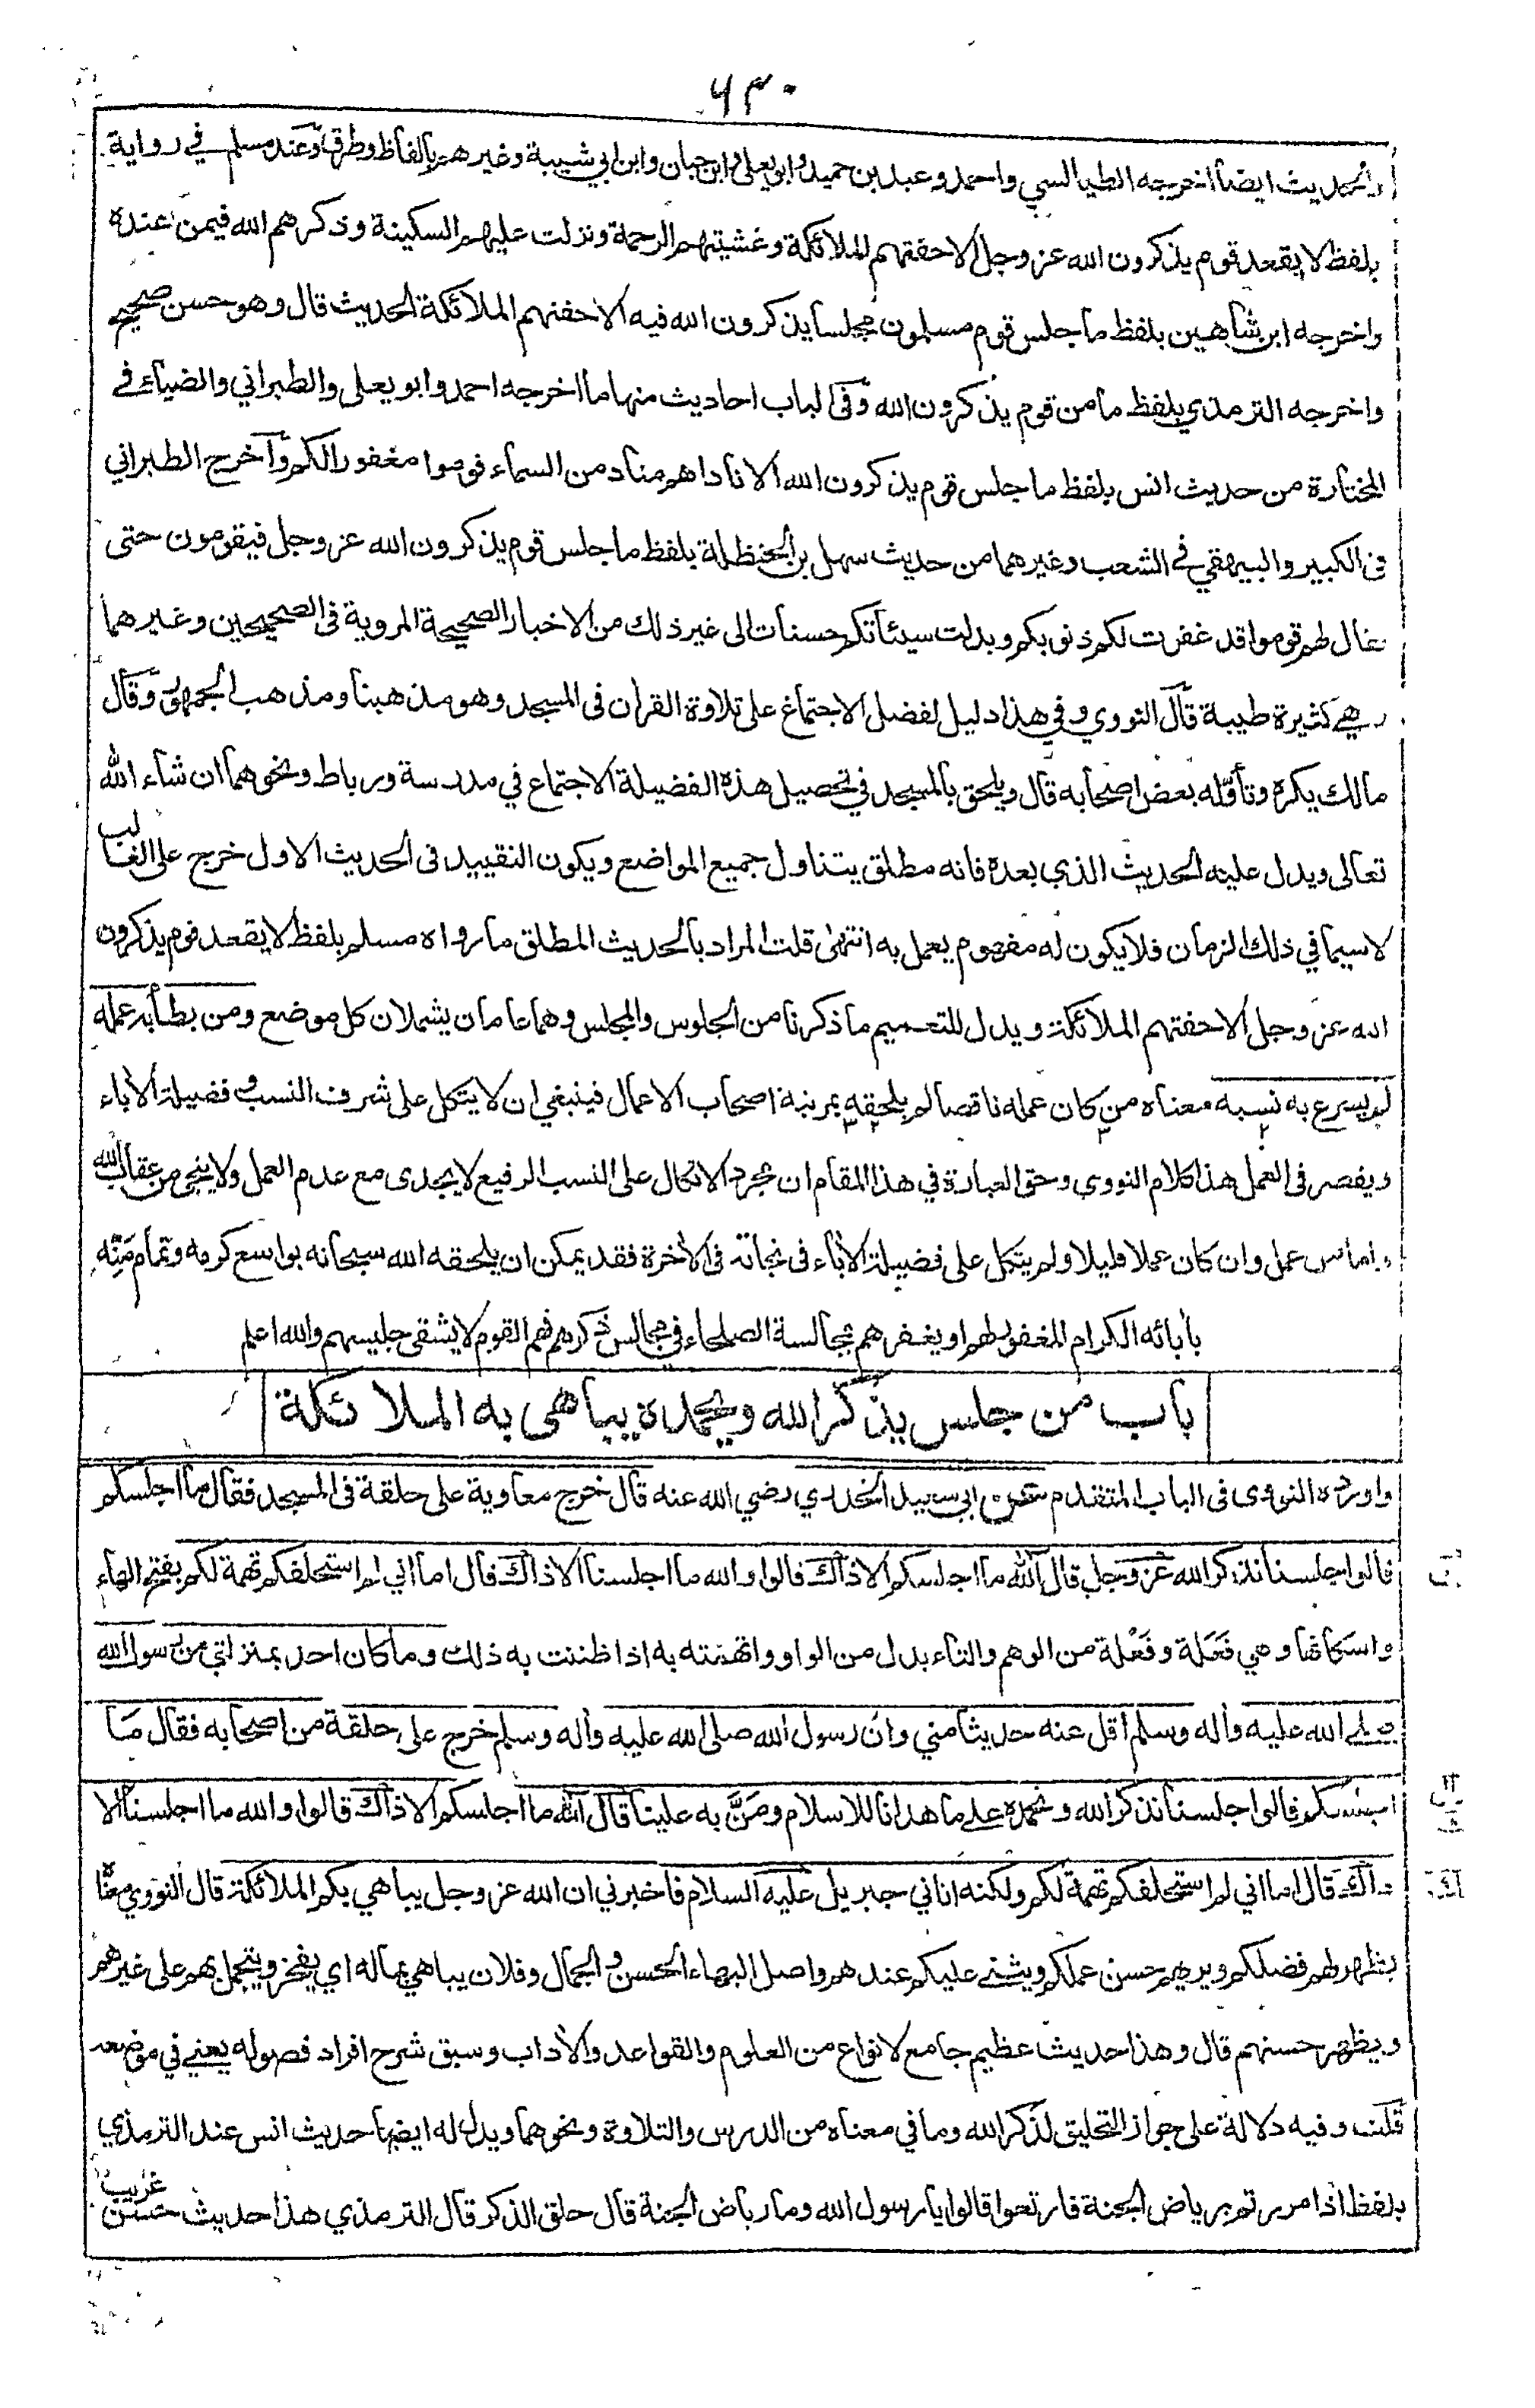 ٦٣٠
والحديث ايضا اخرجه الطيالسي واحمد وعبد بن حميد وابو يعلى وابن حبان وابن ابي شيبة وغيرهم بالفاظ وطرق وعند مسلم في رواية
بلفظ لا يقعد قوم يذكرون الله عز وجل الا حفتهم الملائكة وغشيتهم الرحمة ونزلت عليهم السكينة وذكرهم الله فيمن عنده
واخرجه ابن شاهين بلفظ ما جلس قوم مسلمون مجلسا يذكرون الله فيه الا حفتهم الملائكة الحديث قال وهو حسن صحيح
واخرجه الترمذي بلفظ ما من قوم يذكرون الله وفى الباب احاديث منها ما اخرجه احمد وابو يعلى والطبراني والضياء في
المختارة من حديث انس بلفظ ما جلس قوم يذكرون الله الا ناداهم مناد من السماء قوموا مغفورا لكم وآخرج الطبراني
فى الكبير والبيهقي في الشعب وغيرهما من حديث سهل بن الحنظلة بلفظ ما جلس قوم يذكرون الله عز وجل فيقومون حتى
يقال لهم قوموا قد غفرت لكم ذنوبكم وبدلت سيئاتكم حسنات الى غير ذلك من الاخبار الصحيحة المروية فى الصحيحين وغيرهما
وهي كثيرة طيبة قال النووي وفي هذا دليل لفضل الاجتماع على تلاوة القران فى المسجد وهو مذهبنا ومذهب الجمهور وقال
مالك يكره وتأوله بعض اصحابه قال ويلحق بالمسجد في تحصيل هذه الفضيلة الاجتماع في مدرسة ورباط ونحوهما ان شاء الله
تعالى ويدل عليه الحديث الذي بعده فانه مطلق يتناول جميع المواضع ويكون التقييد فى الحديث الاول خرج على الغالب
لا سيما في ذلك الزمان فلا يكون له مفهوم يعمل به انتهى قلت المراد بالحديث المطلق ما رواه مسلم بلفظ لا يقعد قوم يذكرون
الله عز وجل الا حفتهم الملائكة ويدل للتعميم ما ذكرنا من الجلوس والمجلس وهما عامان يشملان كل موضع ومن بطأ به عمله
لم يسرع به نسبه معناه من كان عمله ناقصا لم يلحقه بمرتبة اصحاب الاعمال فينبغي ان لا يتكل على شرف النسب و فضيلة الأباء
ويقصر فى العمل هذا كلام النووي وحق العبارة في هذا المقام ان مجرد الاتكال على النسب الرفيع لا يجدى مع عدم العمل ولا ينجى من عقاب الله
واما من عمل وان كان عملا قليلا ولم يتكل على فضيلة الأباء فى نجاته فى الأخرة فقد يمكن ان يلحقه الله سبحانه بواسع كرمه وتمام منه
بأبائه الكرام المغفور لهم او يغفر هم بمجالسة الصلحاء في مجالس ذكرهم فهم القوم لا يشقى جليسهم والله اعلم
باب من جلس يذكر الله ويحمده يباهى به الملائكة
واورده النووى فى الباب المتقدم عن ابى سعيد الخدري رضي الله عنه قال خرج معاوية على حلقة فى المسجد فقال ما اجلسكم
قالوا جلسنا نذكر الله عز وجل قال آلله ما اجلسكم الا ذاك قالوا والله ما اجلسنا الا ذاك قال اما اني لم استحلفكم تهمة لكم بفتح الهاء
واسكانها وهي فَعَلة وفَعْلة من الوهم والتاء بدل من الواو واتهمته به اذا ظننت به ذلك وما كان احد بمنزلتي من رسول الله
صلى الله عليه وأله وسلم اقل عنه حديثا مني وان رسول الله صلى الله عليه وأله وسلم خرج على حلقة من اصحابه فقال ما
اجلسكم قالوا جلسنا نذكر الله ونحمده على ما هدانا للاسلام ومَنَّ به علينا قال آلله ما اجلسكم الا ذاك قالوا والله ما اجلسنا الا
ذاك قال اما اني لم استحلفكم تهمة لكم ولكنه اتاني جبريل عليه السلام فاخبرني ان الله عز وجل يباهي بكم الملائكة قال النووي معناه
يظهر لهم فضلكم ويريهم حسن عملكم ويثنى عليكم عندهم واصل البهاء الحسن والجمال وفلان يباهي بماله اي يفخر ويتجمل بهم على غيرهم
ويظهر حسنهم قال وهذا حديث عظيم جامع لانواع من العلوم والقواعد والأداب وسبق شرح افراد فصوله يعني في موضعه
قلت وفيه دلالة على جواز التحليق لذكر الله وما في معناه من الدرس والتلاوة ونحوهما ويدل له ايضا حديث انس عند الترمذي
بلفظ اذا مررتم برياض الجنة فارتعوا قالوا يا رسول الله وما رياض الجنة قال حلق الذكر قال الترمذي هذا حديث حسن غريب